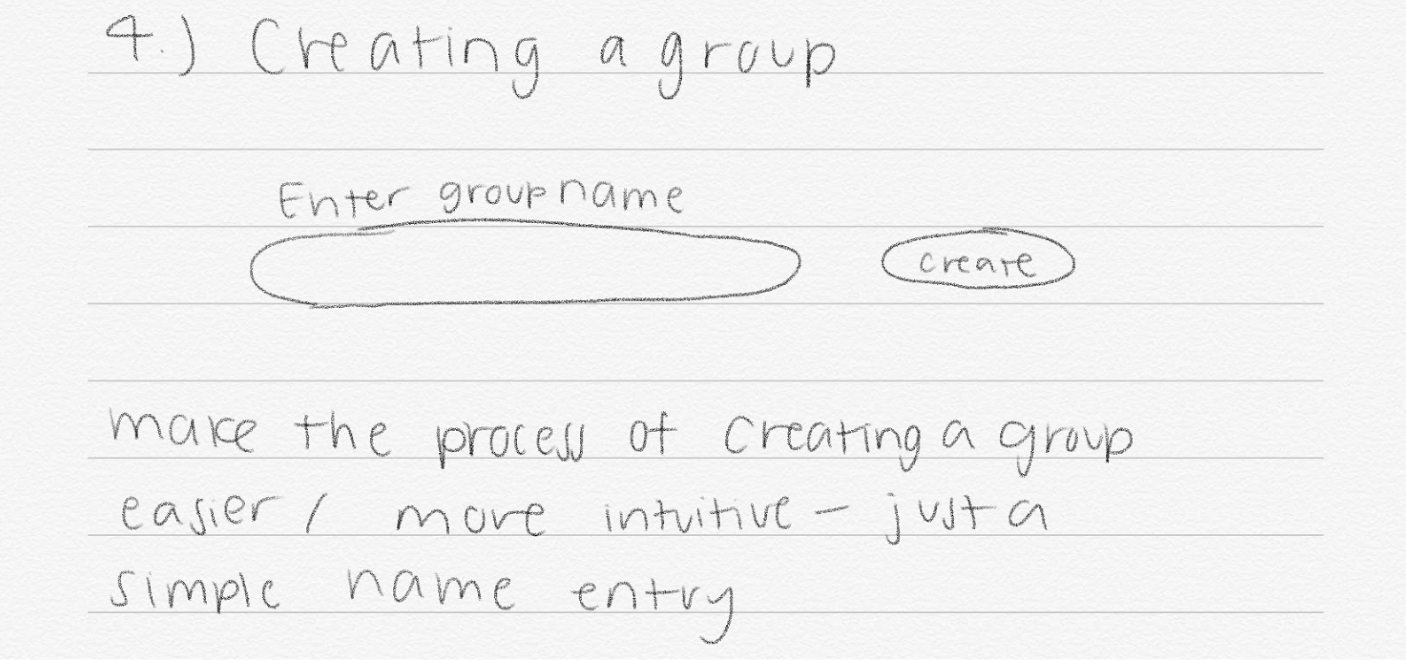 4.) Creating a group
Enter group name
create
make the process of creating a group
easier / more intuitive - just a
simple name entry